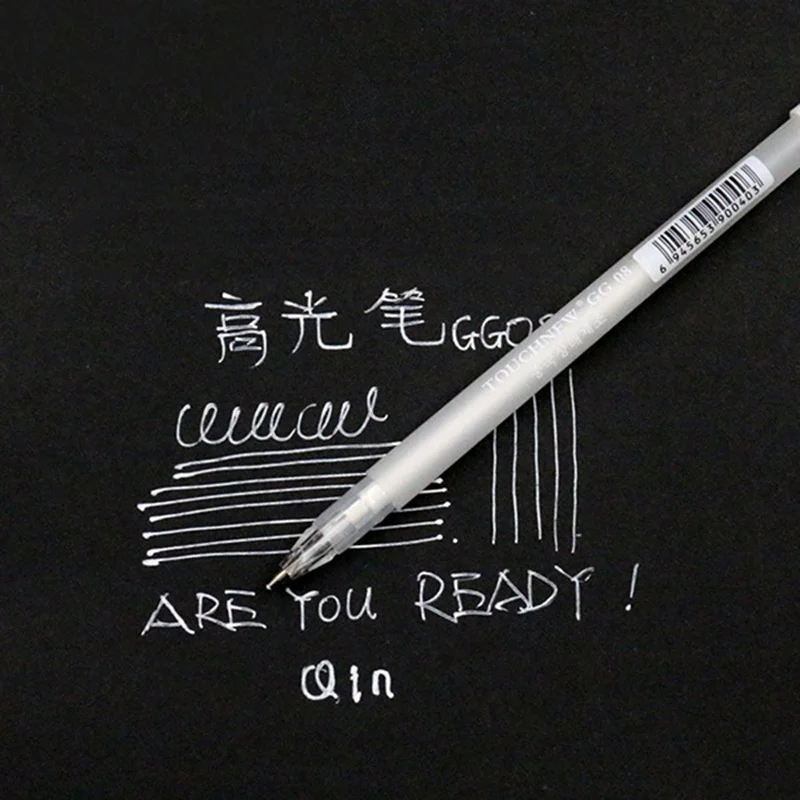 高光笔GGO
TOUCHNEW® GG 08
6 945653 900403
ARE YOU READY !
Qin